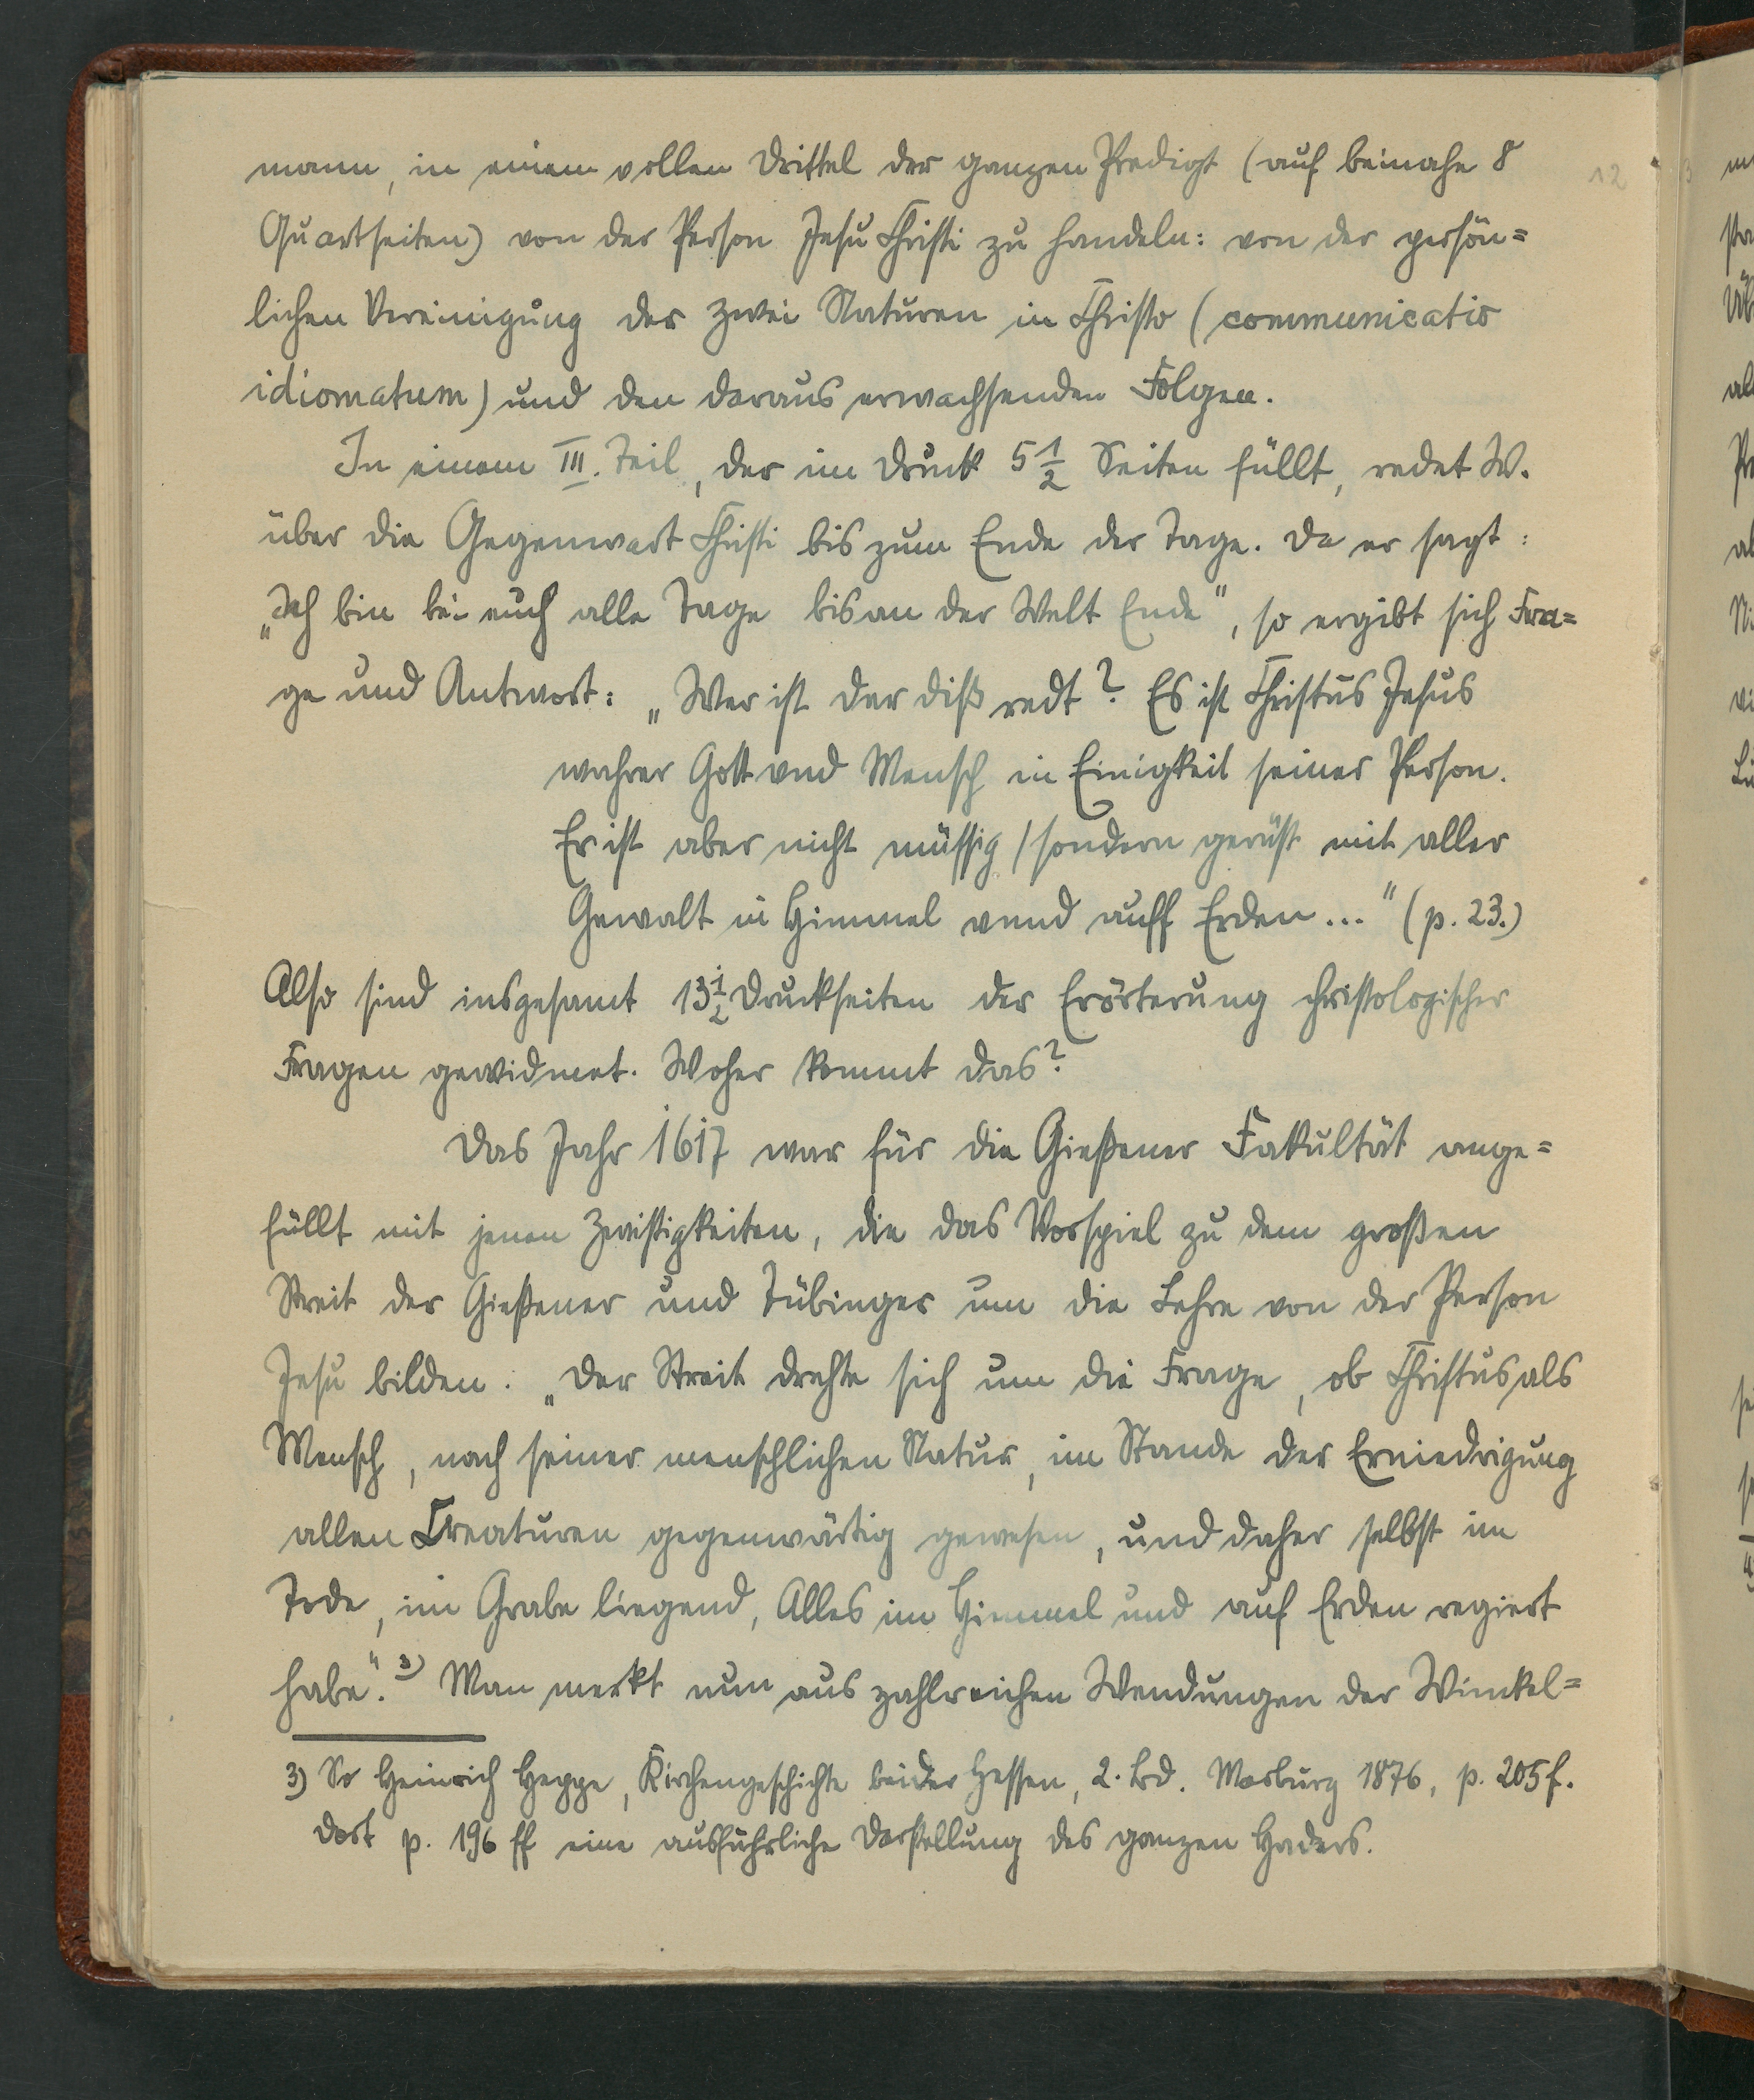 mann, in einem vollen Drittel der ganzen Predigt (auf beinahe 8
Quartseiten) von der Person Jesu Christi zu handeln: von der persön=
lichen Vereinigung der zwei Naturen in Christo (communicatio
idiomatum) und den daraus erwachsenden Folgen.
In einem III. Teil, der im Druck 5 1/2 Seiten füllt, redet W.
über die Gegenwart Christi bis zum Ende der Tage. Da er sagt:
„Ich bin bei euch alle Tage bis an der Welt Ende", so ergibt sich Fra=
ge und Antwort: „Wer ist der diß redt? Es ist Christus Jesus
wahrer Gott vnd Mensch in Einigkeit seiner Person.
Er ist aber nicht müssig / sondern gerüst mit aller
Gewalt in Himmel vnnd auff Erden..." (p. 23.)
Also sind insgesamt 13 1/2 Druckseiten der Erörterung christologischer
Fragen gewidmet. Woher kommt das?
Das Jahr 1617 war für die Gießener Fakultät ange=
füllt mit jenen Zwistigkeiten, die das Vorspiel zu dem großen
Streit der Gießener und Tübinger um die Lehre von der Person
Jesu bilden: „Der Streit drehte sich um die Frage, ob Christus als
Mensch, nach seiner menschlichen Natur, im Stande der Erniedrigung
allen Creaturen gegenwärtig gewesen, und daher selbst im
Tode, im Grabe liegend, Alles im Himmel und auf Erden regiert
habe". 3) Man merkt nun aus zahlreichen Wendungen der Winkel=
3) So Heinrich Heppe, Kirchengeschichte beider Hessen, 2. Bd. Marburg 1876, p. 205 f.
Dort p. 196 ff eine ausführliche Darstellung des ganzen Haders.
12